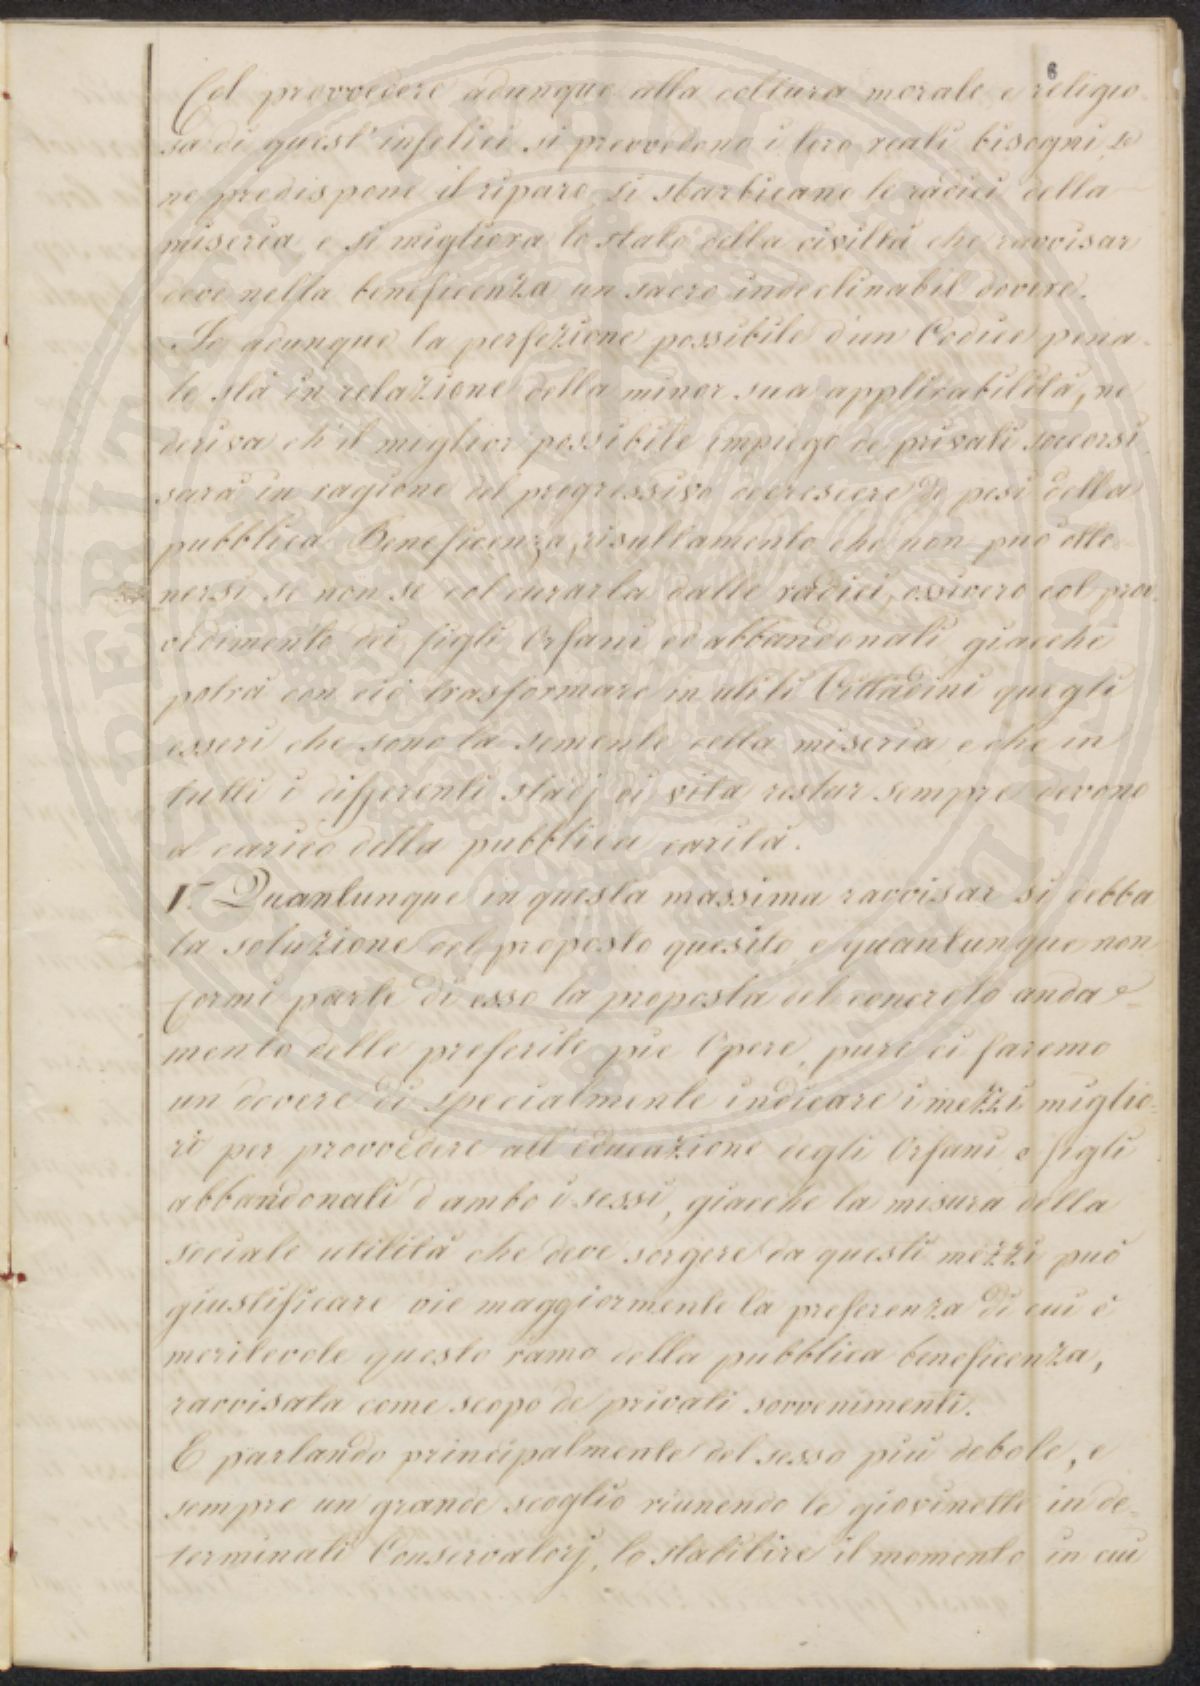 6
Col provvedere adunque alla coltura morale e religio-
sa di quest'infelici si provvedono i loro reali bisogni, se
ne predispone il riparo, si sbarbicano le radici della
miseria e si migliora lo stato della civiltà che ravvisar
deve nella beneficenza un sacro indeclinabil dovere.
Se adunque la perfezione possibile d'un Codice pena-
le stà in relazione della minor sua applicabilità, ne
deriva ch'il miglior possibile impiego de privati soccorsi
sarà in ragione del progressivo decrescere de pesi della
pubblica Beneficenza, risultamento che non può otte-
nersi se non se col curarla dalle radici, ossivero col prov-
vedimento dei figli Orfani ed abbandonati giacchè
potrà con ciò trasformare in utili Cittadini quegli
esseri che sono la semente della miseria e che in
tutti i differenti stadj di vita restar sempre devono
a carico della pubblica carità.
V. Quantunque in questa massima ravvisar si debba
la soluzione del proposto quesito e quantunque non
formi parte di esso la proposta del concreto anda-
mento delle preferite pie Opere, pure ci faremo
un dovere di specialmente indicare i mezzi miglio-
ri per provvedere all'educazione degli Orfani e figli
abbandonati d'ambo i sessi, giacchè la misura della
sociale utilità che deve sorgere da questi mezzi può
giustificare vie maggiormente la preferenza di cui è
meritevole questo ramo della pubblica beneficenza,
ravvisata come scopo de privati sovvenimenti.
E parlando principalmente del sesso più debole, è
sempre un grande scoglio riunendo le giovinette in de-
terminati Conservatorj, lo stabilire il momento in cui
PERITATEI PUBLICAE